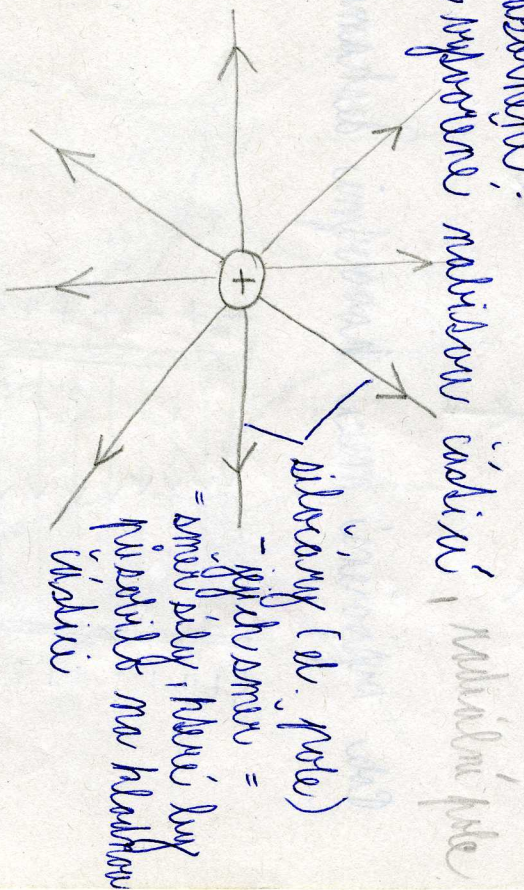 vytvořené nabitou částicí, radiální pole
+
siločáry (el. pole)
- jejich směr =
= směr síly, které by
působilo na kladnou
částici